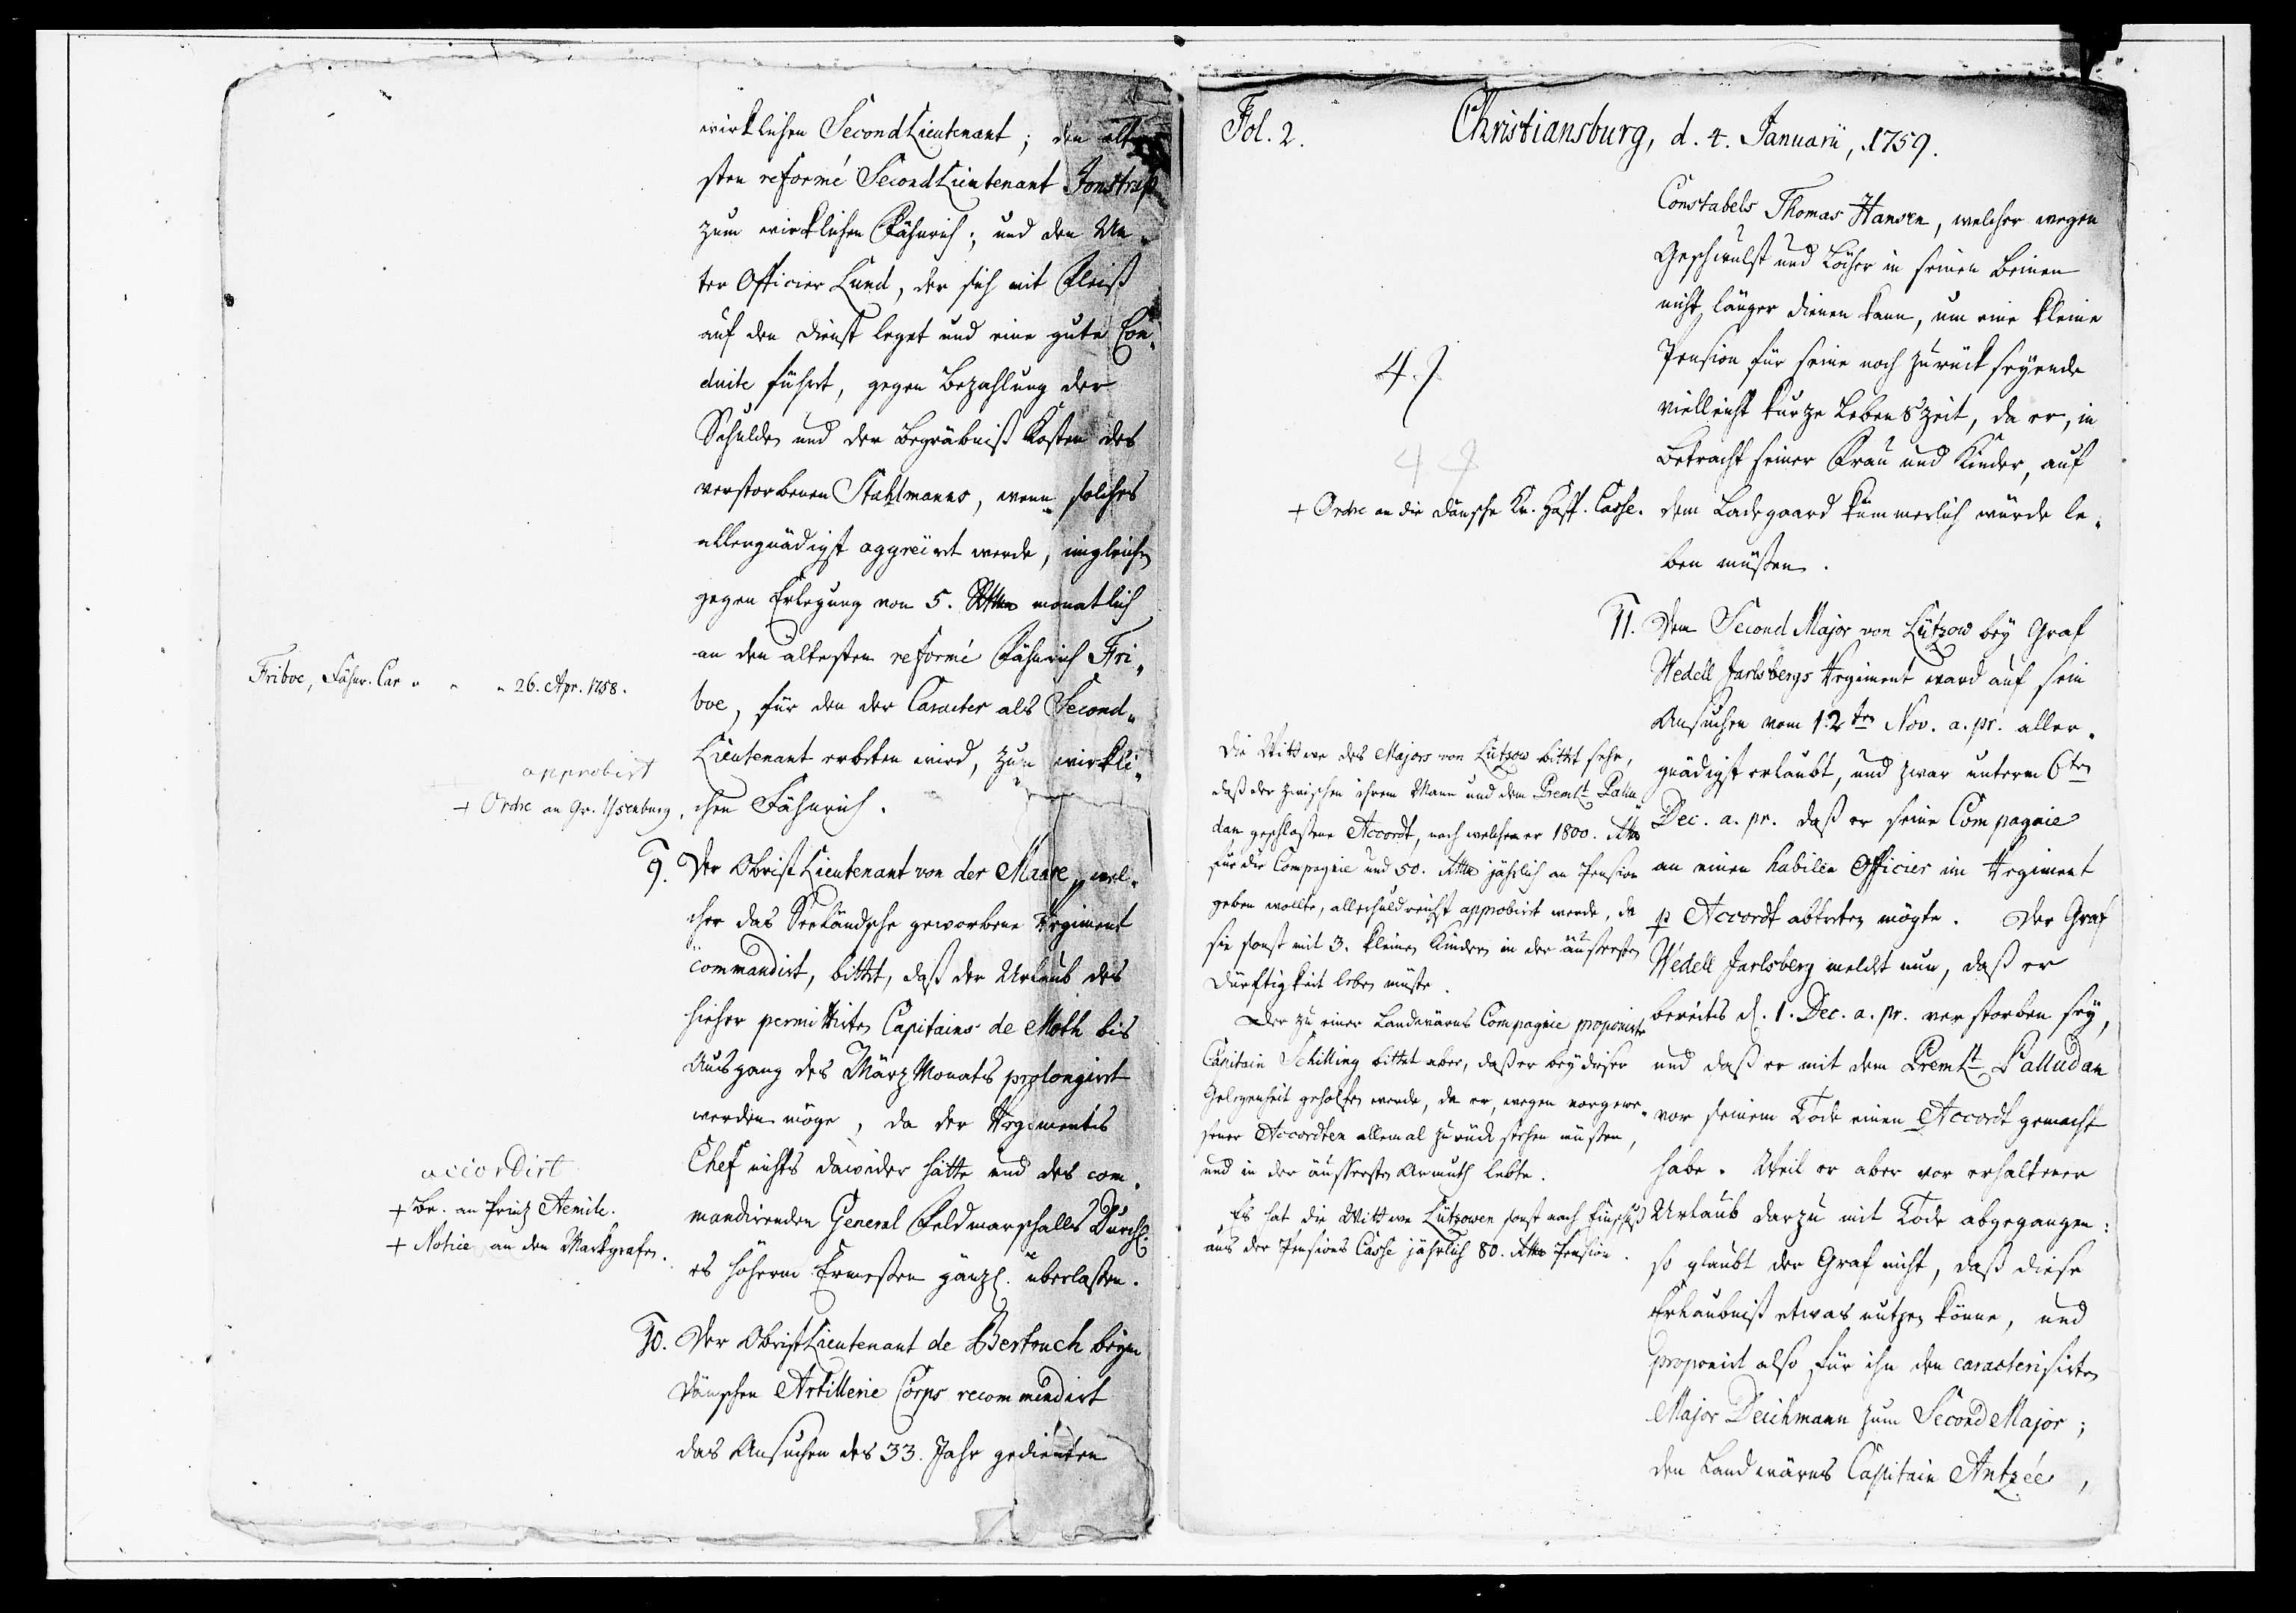 wirklichen SecondLieutenant; den älte-
sten reformé SecondLieutenant Jonstrup
zum wirklichen Fähnrich; und den Un-
ter Officier Lund, der sich mit Fleiß
auf den Dienst leget und eine gute Con-
duite führt, gegen Bezahlung der
Schulden und der Begräbniß Kosten des
verstorbenen Stahlmanns, wenn solches
allergnädigst aggreirt werde, imgleichen
gegen Erlegung von 5. Rthlr monatlich
an den ältesten reformé Fähnrich Fri-
boe, für den der Caracter als Second-
Lieutenant erbeten wird, zum wirkli-
chen Fähnrich.
Friboe, Fähnr. Car " " " 26. Apr. 1758.
approbirt
+ Ordre an Gr. Ysenburg.
9. Der ObristLieutenant von der Maase, wel-
cher das Seeländsche geworbene Regiment
commandirt, bittet, daß der Urlaub des
hieher permittirten Capitains de Moth bis
Ausgang des März Monats prolongirt
werden möge, da der Regiments
Chef nichts dawider hätte und des com-
mandirenden General Feldmarschalls Durchl.
es höherm Ermessen gänzl. überlaßen.
accordirt
+ Br. an Prinz Aemile.
+ Notice an den Markgrafen.
10. Der ObristLieutenant de Bertouch beym
Dänschen Artillerie Corps recommendirt
das Ansuchen des 33. Jahr gedienten
Fol. 2. Christiansburg, d. 4. Januarii, 1759.
Constabels Thomas Hansen, welcher wegen
Geschwulst und Löcher in seinen Beinen
nicht länger dienen kann, um eine kleine
Pension für seine noch zurück seyende
vielleicht kurze Lebenszeit, da er, in
Betracht seiner Frau und Kinder, auf
dem Ladegaard kümmerlich würde le-
ben müßen.
4.
+ Ordre an die Dänsche Kr. Hosp. Casse.
11. Dem Second Major von Lützow bey Graf
Wedell Jarlsbergs Regiment ward auf sein
Ansuchen vom 12ten Nov. a. pr. aller-
gnädigst erlaubt, und zwar unterm 6ten
Dec. a. pr. daß er seine Compagnie
an einen habilen Officier im Regiment
p Accordt abtreten mögte. Der Graf
Wedell Jarlsberg meldet nun, daß er
bereits d. 1. Dec. a. pr. verstorben sey,
und daß er mit dem Premlt Palludan
vor seinem Tode einen Accordt gemacht
habe. Weil er aber vor erhaltener
Urlaub darzu mit Tode abgegangen:
so glaubt der Graf nicht, daß diese
Erlaubniß etwas nutzen könne, und
proponirt also für ihn den caracterisirten
Major Deichmann zum SecondMajor;
den Landwärns Capitain Antzée,
Die Wittwe des Majors von Lützow bittet sehr,
daß der zwischen ihrem Mann und dem Premlt Pallu-
dan geschloßene Accordt, nach welchem er 1800. Rthlr
für die Compagnie und 50. Rthlr jährlich an Pension
geben wollte, allerhuldreichst approbirt werde, da
sie sonst mit 3. kleinen Kindern in der äussersten
Dürftigkeit leben müste.
Der zu einer Landwärns Compagnie proponirte
Capitain Schilling bittet aber, daß er bey dieser
Gelegenheit geholfen werde, da er, wegen vorgewe-
sener Accordten allemal zurück stehen müssen,
und in der äussersten Armuth lebte.
Es hat die Wittwe Lützowen sonst nach Einschuß
aus der Pensions Casse jährlich 80. Rthlr Pension.